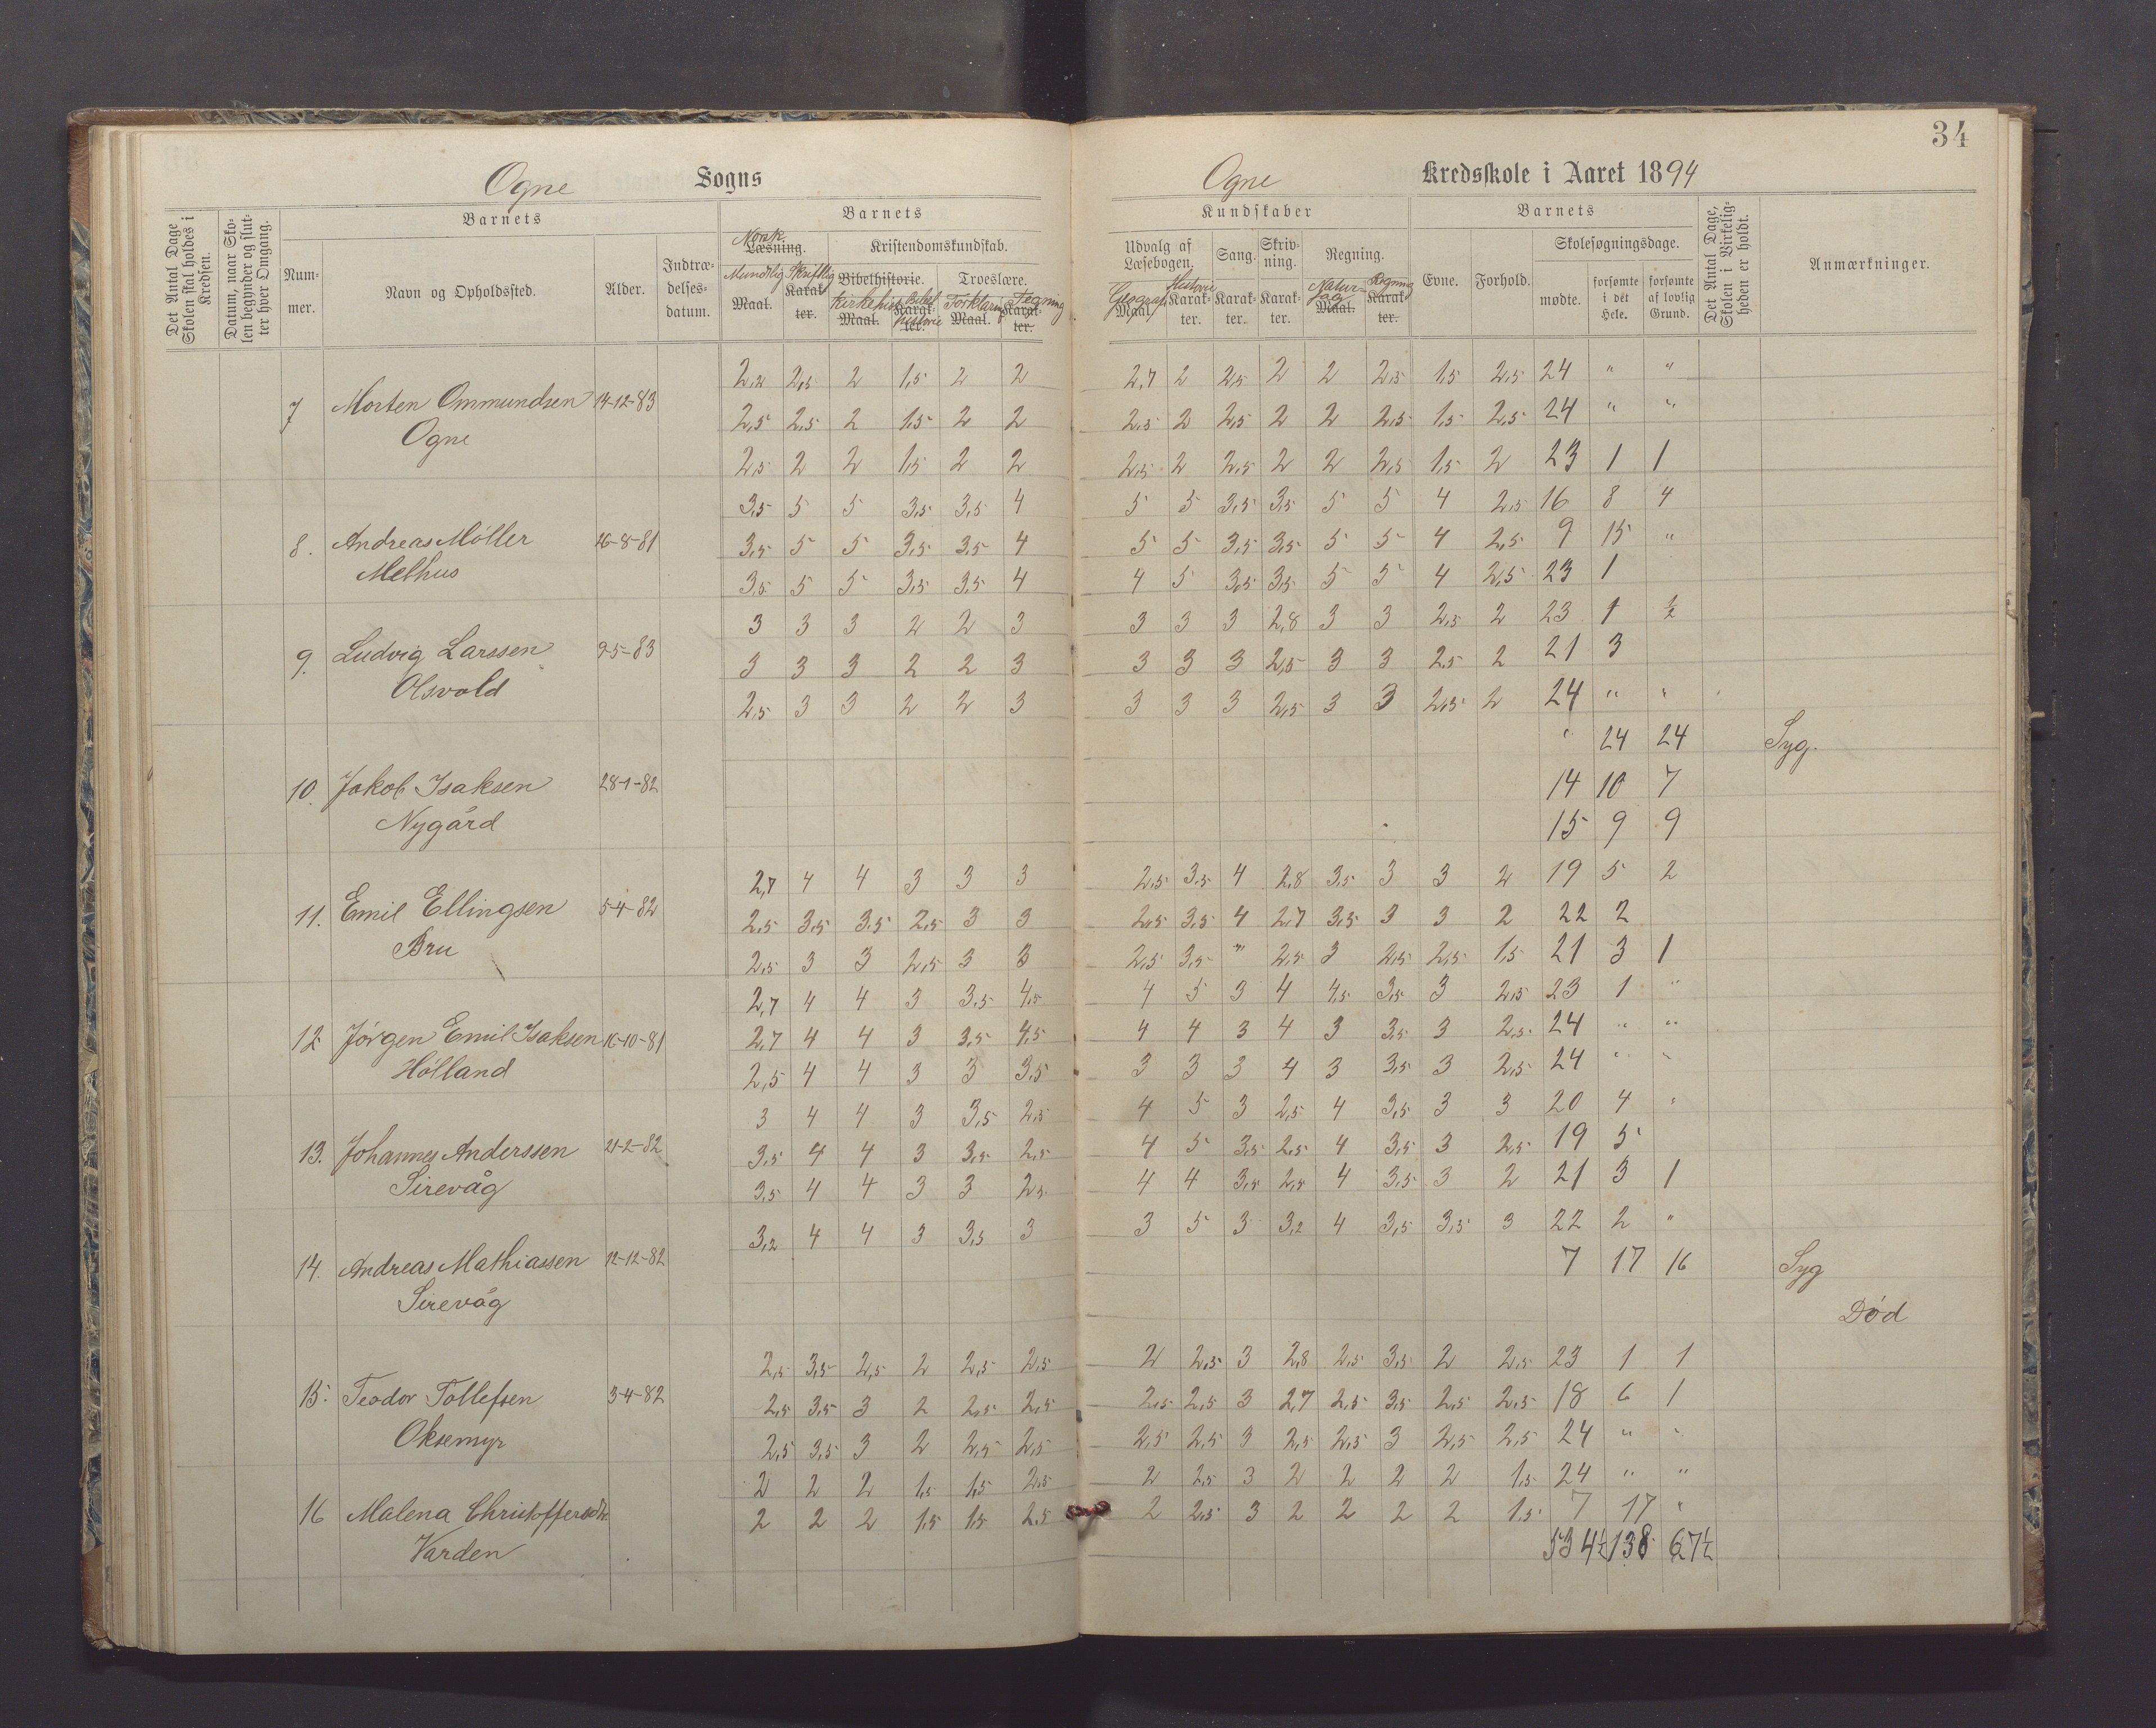 34
Ogne Sogns
Ogne Kredsskole i Aaret 1894
Det Antal Dage Skolen skal holdes i Kredsen.
Datum, naar Skolen begynder og slutter hver Omgang.
Barnets
Nummer.
Navn og Opholdssted.
Alder.
Indtrædelsesdatum.
Barnets
Norsk
Læsning.
Mundtlig Skriftlig
Maal. Karakter.
Kristendomskundskab.
Bibelhistorie. Troeslære.
Kirkehist. Bibelhistorie Forklaring Tegning
Maal. Karakter. Maal. Karakter.
Kundskaber
Udvalg af Læsebogen.
Geograf. Historie
Maal. Karakter.
Sang. Karakter.
Skrivning. Karakter.
Regning.
Naturfag Regning
Maal. Karakter.
Barnets
Evne. Forhold.
Skolesøgningsdage.
mødte. forsømte i det Hele. forsømte af lovlig Grund.
Det Antal Dage, Skolen i Virkeligheden er holdt.
Anmærkninger.
2,2 2,5 2 1,5 2 2 2,7 2 2,5 2 2 2,5 1,5 2,5 24 " "
7 Morten Ommundsen 14-12-83 2,5 2,5 2 1,5 2 2 2,5 2 2,5 2 2 2,5 1,5 2,5 24 " "
Ogne 2,5 2 2 1,5 2 2 2,5 2 2,5 2 2 2,5 1,5 2 23 1 1
3,5 5 5 3,5 3,5 4 5 5 3,5 3,5 5 5 4 2,5 16 8 4
8. Andreas Möller 26-8-81 3,5 5 5 3,5 3,5 4 5 5 3,5 3,5 5 5 4 2,5 9 15 "
Melhus 3,5 5 5 3,5 3,5 4 4 5 3,5 3,5 5 5 4 2,5 23 1
3 3 3 2 2 3 3 3 3 2,8 3 3 2,5 2 23 1 ½
9. Ludvig Larssen 9-5-83 3 3 3 2 2 3 3 3 3 2,5 3 3 2,5 2 21 3
Olsvold 2,5 3 3 2 2 3 3 3 3 2,5 3 3 2,5 2 24 " "
" 24 24 Syg.
10. Jakob Isaksen 28-1-82 14 10 7
Nygård 15 9 9
2,7 4 4 3 3 3 2,5 3,5 4 2,8 3,5 3 3 2 19 5 2
11. Emil Ellingsen 5-4-82 2,5 3,5 3,5 2,5 3 3 2,5 3,5 4 2,7 3,5 3 3 2 22 2
Bru 2,5 3 3 2,5 3 3 2,5 3,5 " 2,5 3 2,5 2,5 1,5 21 3 1
2,7 4 4 3 3,5 4,5 4 5 3 4 4,5 3,5 3 2,5 23 1 "
12 Jörgen Emil Isaksen 16-10-81 2,7 4 4 3 3,5 4,5 4 4 3 4 3 3,5 3 2,5 24 " "
Hölland 2,5 4 4 3 3 3,5 3 3 3 4 3 3,5 3 2,5 24 " "
3 4 4 3 3,5 2,5 4 5 3 2,5 4 3,5 3 3 20 4 "
13. Johannes Anderssen 21-2-82 3,5 4 4 3 3,5 2,5 4 5 3,5 2,5 4 3,5 3 2,5 19 5
Sirevåg 3,5 4 4 3 3 2,5 4 4 3,5 2,5 4 3,5 3 2 21 3 1
3,2 4 4 3 3,5 3 3 5 3 3,2 4 3,5 3,5 3 22 2 "
14. Andreas Mathiassen 12-12-82 7 17 16 Syg
Sirevåg Död
2,5 3,5 2,5 2 2,5 2,5 2 2,5 3 2,8 2,5 3,5 2 2,5 23 1 1
15. Teodor Tollefsen 3-4-82 2,5 3,5 3 2 2,5 2,5 2,5 2,5 3 2,7 2,5 3,5 2,5 2,5 18 6 1
Oksemyr 2,5 3,5 3 2 2,5 2,5 2,5 2,5 3 2,5 2,5 3 2,5 2,5 24 " "
2 2 2 1,5 1,5 2,5 2 2,5 3 2 2 2 2 1,5 24 " "
16 Malena Christoffersdtr. 2 2 2 1,5 1,5 2,5 2 2,5 3 2 2 2 2 1,5 7 17 "
Varden 534½ 138 67½